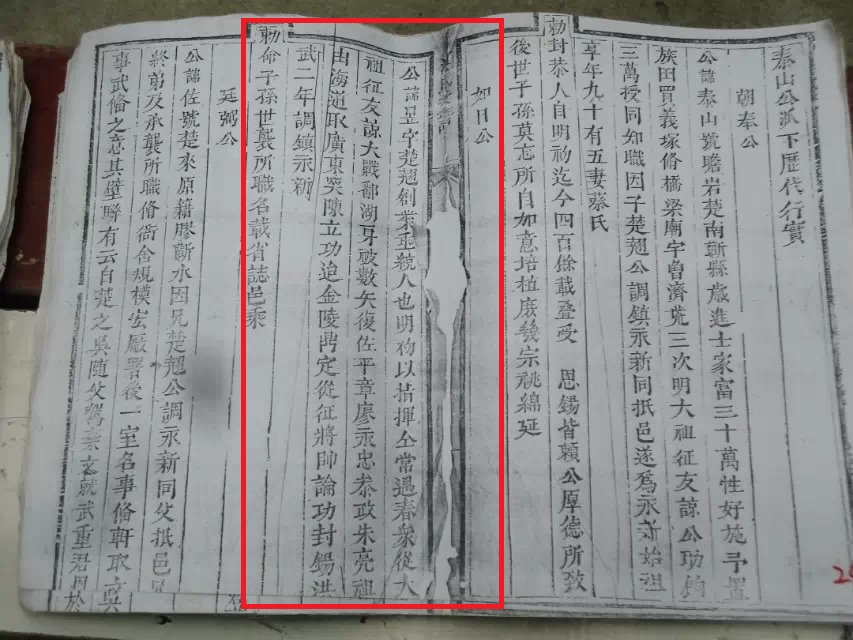 泰山公派下歷代行實
朝奉公
公諱泰山號瞻岩楚南蘄縣歲進士家富三十萬性好施予置
族田買義塚脩橋梁廟宇曾濟荒三次明大祖征友諒公助餉
三萬授同知職因子楚翹公調鎮永新同抵邑遂為永新始祖
享年九十有五妻蔡氏
勅封恭人自明初迄今四百餘載叠受 恩錫皆賴公厚德所致
後世子孫莫忘所自加意培植庶幾宗祧綿延
如日公
公諱昱字楚翹創業垂統人也明初以指揮仝常遇春衆從大
祖征友諒大戰鄱湖身被數矢復佐平章廖永忠叅政朱亮祖
由海道取廣東突陳立功迨金陵鼎定從征將帥論功封錫洪
武二年調鎮永新
勅命子孫世襲所職名載省誌邑乘
廷弼公
公諱佐號楚來原籍膠蘄水因兄楚翹公調永新同父抵邑
終弟及承襲所職脩衙舍規模宏厰署後一室名事脩軒取
事武脩之意其壁聯有云自楚之吳隨父
就武重君恩於